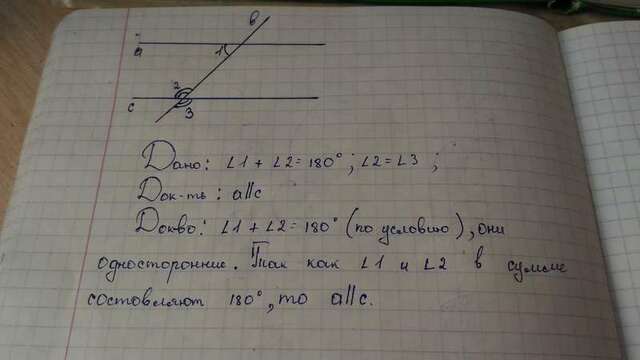 в
а
1
2
с
3
Дано: ∠1 + ∠2 = 180°; ∠2 = ∠3 ;
Док-ть : a||c
Док-во: ∠1 + ∠2 = 180° (по условию), они
односторонние. Так как ∠1 и ∠2 в сумме
составляют 180°, то a||c.